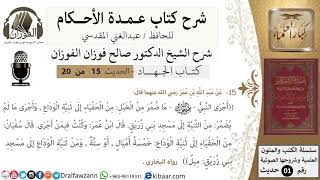 شرح كتاب عمدة الأحكام
للحافظ / عبدالغني المقدسي
شرح الشيخ الدكتور صالح فوزان الفوزان
كتاب الجهاد - الحديث 15 من 20
15- عَنْ عَبْدِ اللَّهِ بْنِ عُمَرَ رَضِيَ اللَّهُ عَنْهُمَا قَالَ:
((أَجْرَى النَّبِيُّ ﷺ مَا ضُمِّرَ مِنَ الْخَيْلِ مِنَ الْحَفْيَاءِ إِلَى ثَنِيَّةِ الْوَدَاعِ، وَأَجْرَى مَا لَمْ
يُضَمَّرْ مِنَ الثَّنِيَّةِ إِلَى مَسْجِدِ بَنِي زُرَيْقٍ، قَالَ ابْنُ عُمَرَ: وَكُنْتُ فِيمَنْ أَجْرَى. قَالَ سُفْيَانُ:
مِنَ الْحَفْيَاءِ إِلَى ثَنِيَّةِ الْوَدَاعِ: خَمْسَةُ أَمْيَالٍ، أَوْ سِتَّةٌ، وَمِنْ ثَنِيَّةِ الْوَدَاعِ إِلَى مَسْجِدِ
بَنِي زُرَيْقٍ: مِيلٌ)). رواه البخاري.
الفوزان
كبار العلماء
سلسلة الكتب والمتون
العلمية وشروحها الصوتية
رقم 01 حديث
Dralfawzann
+966-99119311
kibaar.com